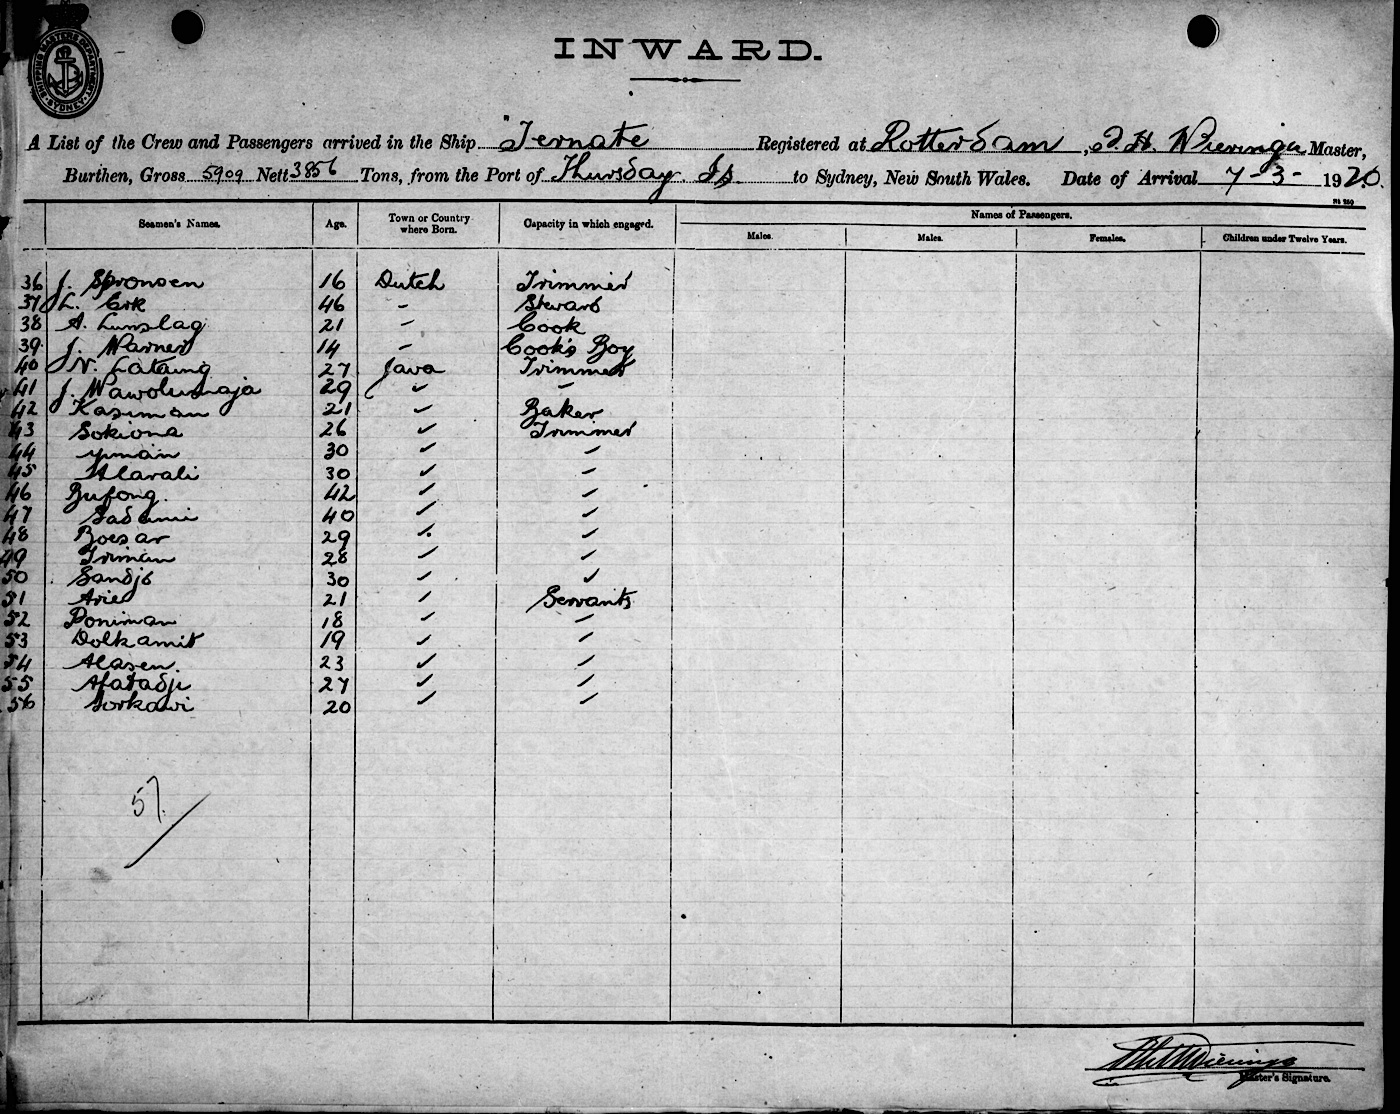 SHIPPING MASTERS DEPARTMENT SYDNEY
INWARD.
A List of the Crew and Passengers arrived in the Ship "Ternate Registered at Rotterdam, H. Wieringa Master,
Burthen, Gross 5909 Nett 3856 Tons, from the Port of Thursday Is to Sydney, New South Wales. Date of Arrival 7-3-1920.
Seamen's Names. Age. Town or Country where Born. Capacity in which engaged. Names of Passengers.
Males. Males. Females. Children under Twelve Years.
36 J. Spronsen 16 Dutch Trimmer
37 L. Ork 46 - Steward
38 A. Lunslag 21 - Cook
39 J. Warner 14 - Cook's Boy
40 N. Lataing 27 Java Trimmer
41 J. 29 " -
42 Kasiman 21 " Baker
43 Sokiona 26 " Trimmer
44 yman 30 " "
45 Alarali 30 " "
46 Bufong. 42 " "
47 Sadimi 40 " "
48 Boesar 29 " "
49 Triman 28 " "
50 Sandjo 30 " "
51 Arie 21 " Servants
52 Poniman 18 " "
53 Dolkamit 19 " "
54 Alasen. 23 " "
55 Afatadji 27 " "
56 Sorkawi 20 " "
57.
Master's Signature.